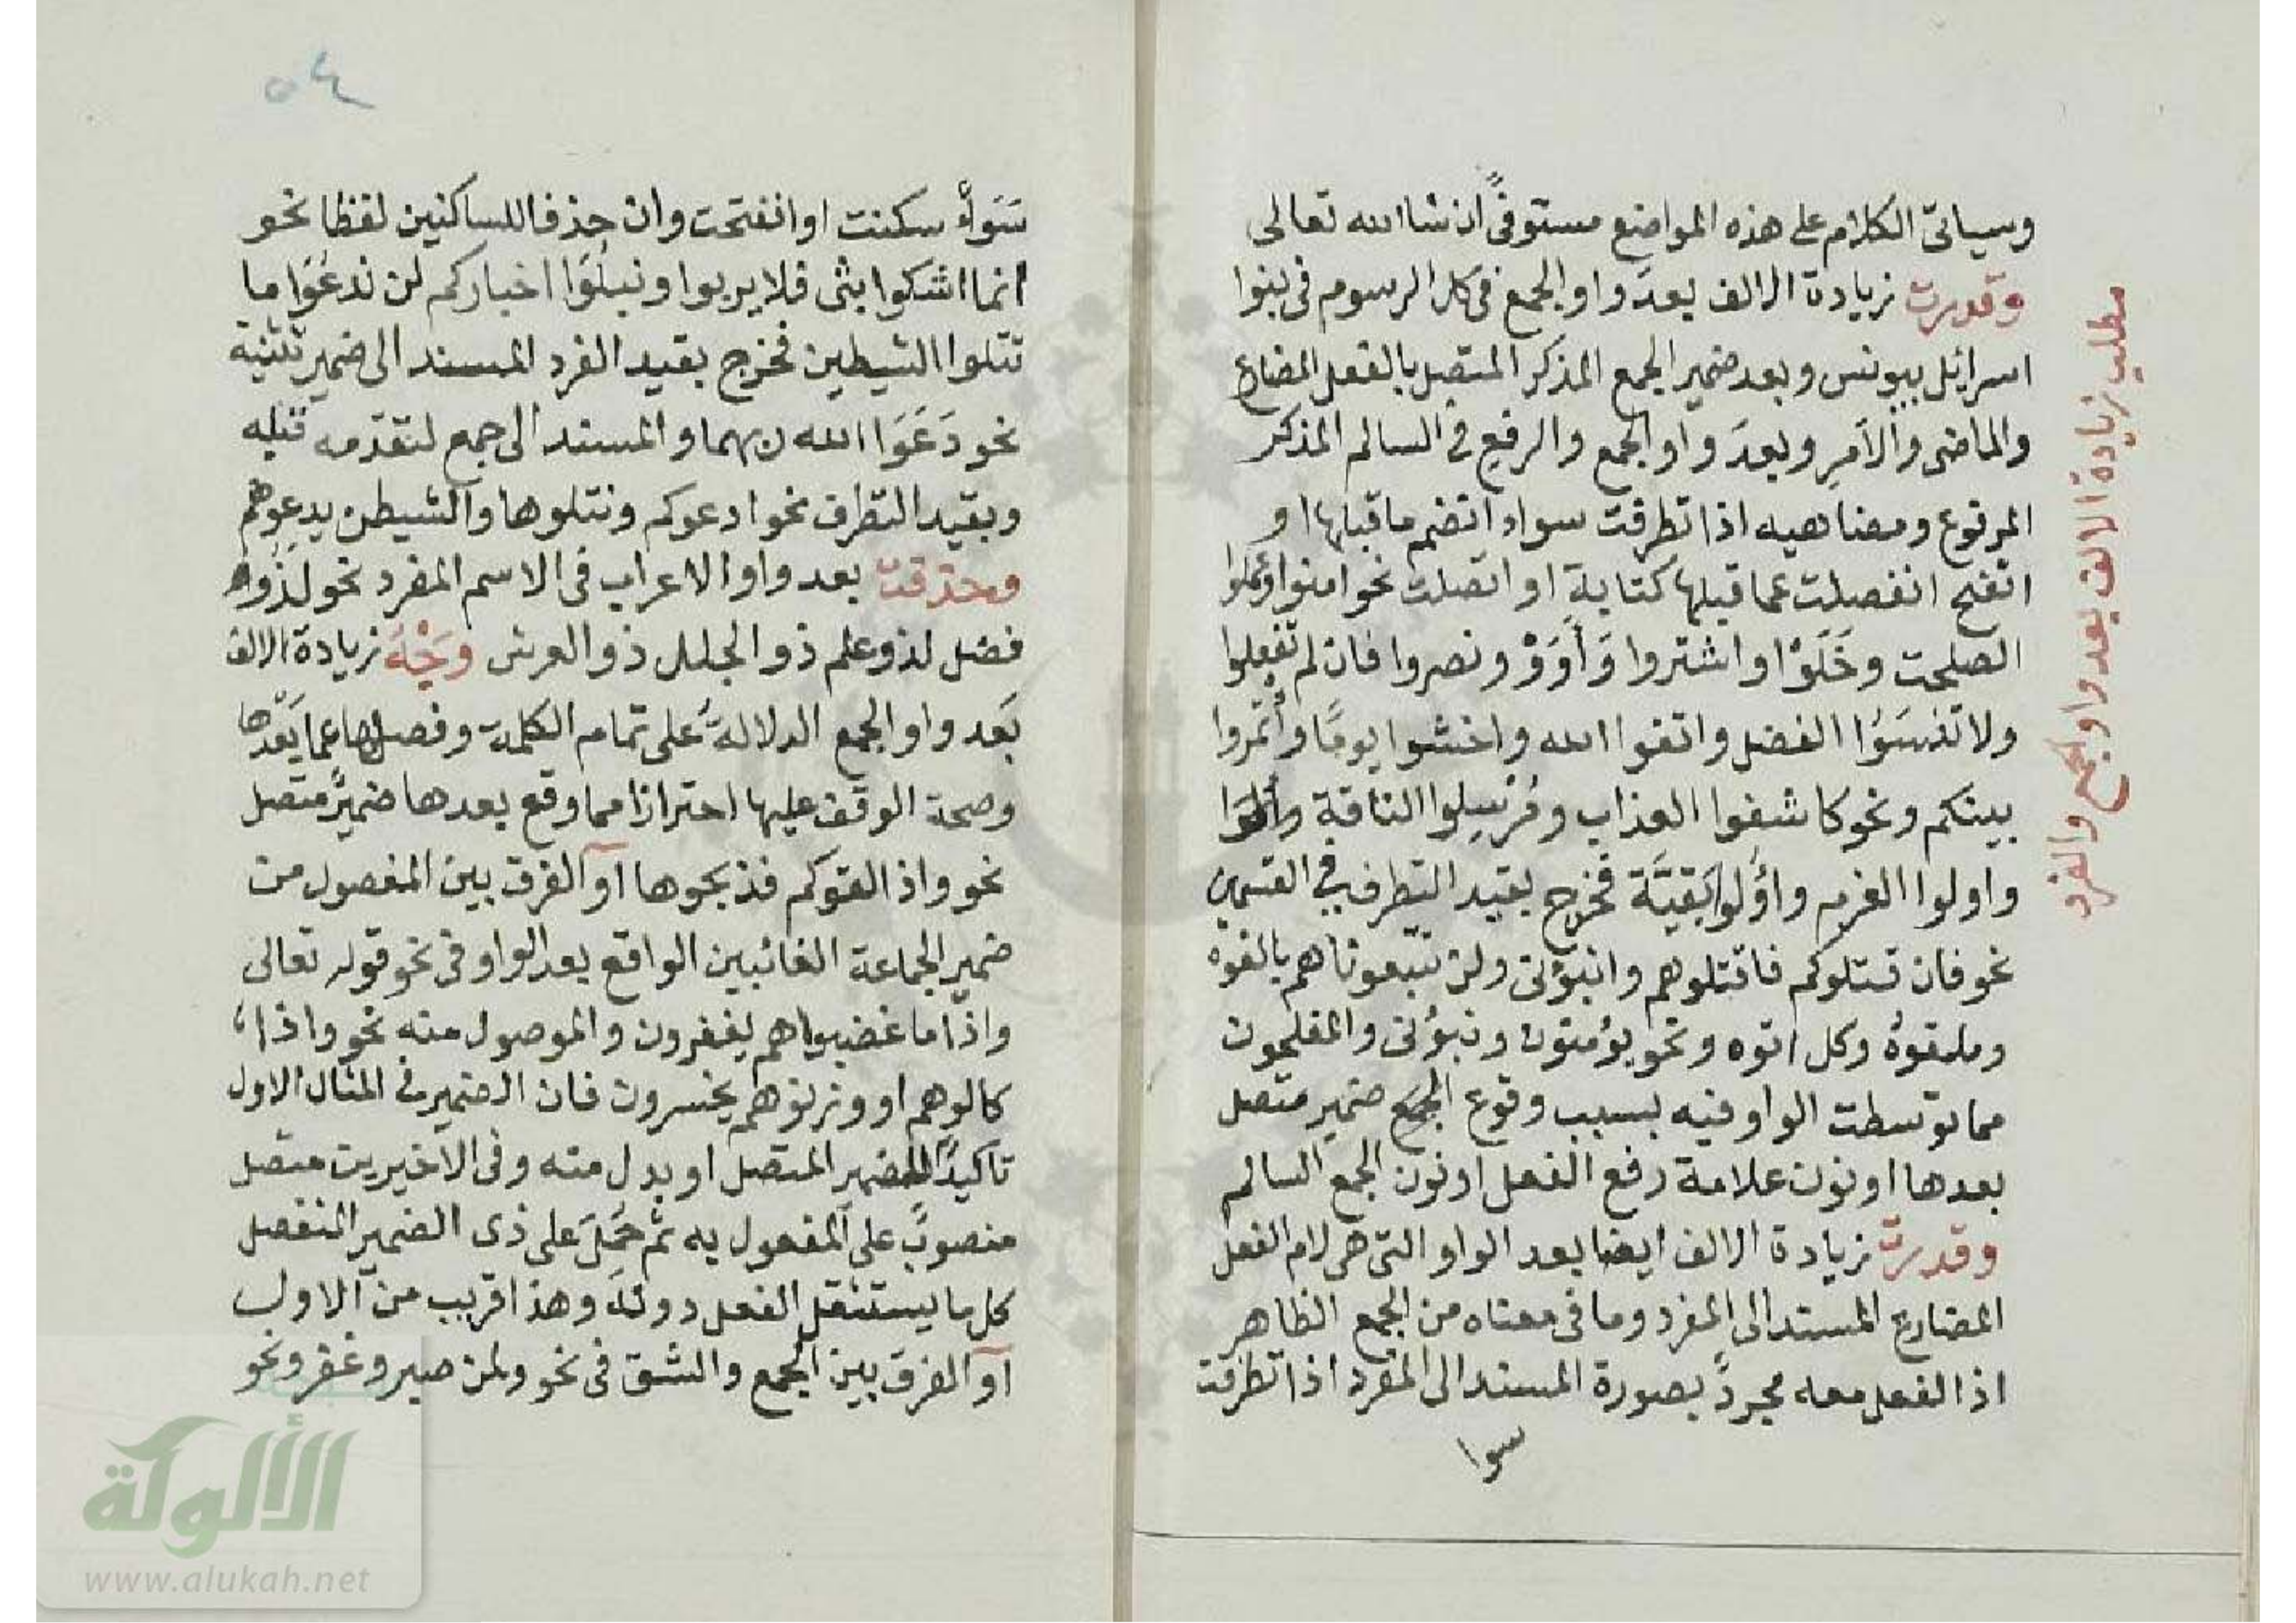 وسياتى الكلام على هذه المواضع مستوفىً ان شا الله تعالى
وقدرت زيادة الالف بعدَ واو الجمع فى كل الرسوم فى بنوا
اسرائيل بيونس وبعد ضمير الجمع المذكر المتصل بالفعل المضارع
والماضى والاَمرِ وبعدَ واو الجمع والرفعِ فى السالم المذكر
المرفوع ومعناهيه اذا تطرفت سواء انضم ما قبلها او
انفتح انفصلت عما قبلها كتابة او اتصلت نحو امنوا وعملوا
الصلحت وخَلَوْا واشتروا وَأَوَوْ ونصروا فان لم تفعلوا
ولا تَنسَوُا الفضل واتقوا الله واخشوا يومًا وأْتمروا
بينكم ونحو كاشفوا العذاب ومُرْسِلوا الناقة
واولوا العزم واُولُوا بَقيَّة فخرج بقيد التطرف فى القسمين
نحو فان قتلوكم فاقتلوهم وانبؤنى ولن تتبعونا هم بالغوه
وملقوهُ وكل اتوه ونحو يؤمنون ونبؤنى والمفلحون
مما توسطت الواو فيه بسبب وقوع الجمع ضمير متصل
بعدها او نون علامة رفع الفعل او نون الجمع السالم
وقدرت زيادة الالف ايضا بعد الواو التى هى لام الفعل
المضارع المسند الى المفرد وما فى معناه من الجمع الظاهر
اذ الفعل معه مجردً بصورة المسند الى المفرد اذا تطرفت
سوا
مطلب زيادة الالف بعد واو الجمع والفرد
٥٤
سَوَاءٌ سكنت او انفتحت وان حذفا للساكنين لفظا نحو
انما اشكوا بثى فلا يربوا ونبلُوَا اخباركم لن ندعُوَا ما
تتلوا الشيطين فخرج بقيد الفرد المسند الى ضمير تثنية
نحو دَعَوَا الله ربهما والمسند الى جمع لتقدّمه قبله
وبقيد التطرف نحو ادعوكم ونتلوها والشيطن يدعوهم
وحذفت بعد واو الاعراب فى الاسم المفرد نحو لَذُو
فضل لذو علم ذو الجلل ذو العرش وَجْهُ زيادة الالف
بَعد واو الجمع الدلالةُ على تمام الكلمة وفصلها عما بَعْدها
وصحة الوقف عليها احترازا مما وقع بعدها ضميرٌ متصل
نحو واذ القوكم فذبحوها او الفرق بين المفصول من
ضمير الجماعة الغائبين الواقع بعد الواو فى نحو قوله تعالى
واذا ما غضبوا هم يغفرون والموصول منه نحو واذا
كالوهم او وزنوهم يخسرون فان الضمير فى المثال الاول
تاكيدًا للضمير المتصل او بدل منه وفى الاخيرين متصل
منصوبٌ على المفعول به ثم حُمِلَ على ذى الضمير المنفصل
كل ما يستنقل الفعل دونَهُ وهذا قريب من الاول
او الفرق بين الجمع والشق فى نحو ولمن صبر وغفر ونحو
الألوكة
www.alukah.net